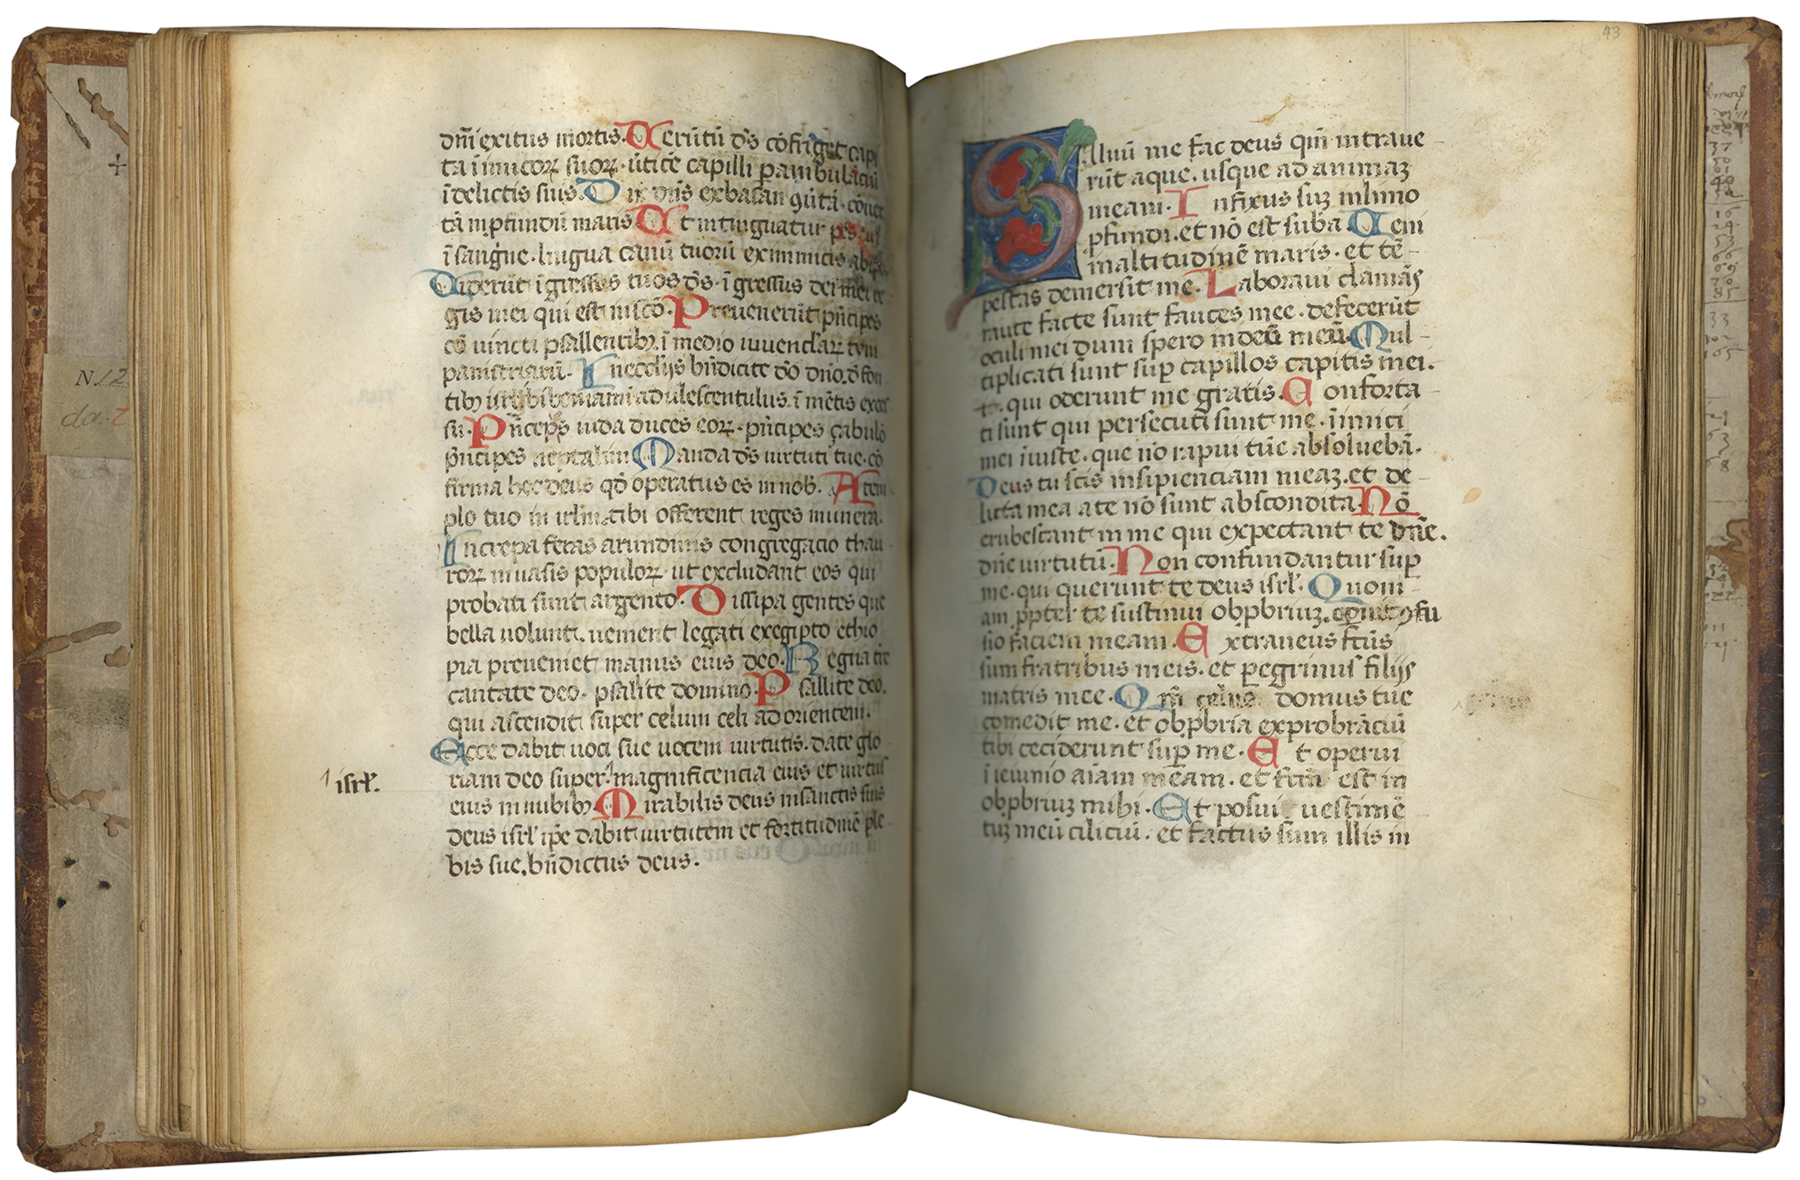 dn̄i exitus mortis. Uerūtū d̄s cōfriget capi
ta īnimicoꝝ suoꝝ. ūticē capilli ꝑambulāciū
ī delictis suis. Dix dn̄s exbasan ꝯūtā. cōuer
tā inꝓfundū maris. Ut intinguatur pes tuꝰ
ī sangīe. lingua canū tuorū exinimicis ab ip̄o
Uiderūt īgressus tuos d̄s. īgressus dei mei re
gis mei qui est insc̄o. Preuenerūt pn̄cipes
cō uincti psallentibꝫ. ī medio iuuenclaꝝ tym
panistriarū. In ecclijs bn̄dicate d̄o dn̄o. d̄ fon
tibꝫ isrl̄. ibi beniamī adulescentulus. ī mētis exces
su. Pn̄ceps iuda duces eoꝝ. pn̄cipes çabulō
pn̄cipes neptalim. Manda d̄s uirtuti tue. cō
firma hoc deus qd̄ operatus es in nob̄. A tem
plo tuo in irl̄m. tibi offerent reges munera.
Increpa feras arundinis congregacio thau
roꝝ in uasis populoꝝ. ut excludant eos qui
probati sunt argento. Dissipa gentes que
bella uolunt. uenient legati exegipto ethio
pia preueniet manus eius deo. Regna tr̄e
cantate deo. psalite domino. Psallite deo.
qui ascendit super celum celi ad orientem.
Ecce dabit uoci sue uocem uirtutis. date glo
riam deo super. magnificencia eius et uirtus
isrl̄.
eius in nubibꝫ. Mirabilis deus insanctis suis
deus isrl̄ ip̄e dabit uirtutem et fortitudinē ple
bis sue. bn̄dictus deus.
43
Saluū me fac deus qm̄ intraue
rūt aque. usque ad animaꝫ
meam. Infixus suꝫ inlimo
ꝓfundi. et nō est suba. Ueni
inaltitudinē maris. et tē
pestas demersit me. Laboraui clamās
rauce facte sunt fauces mee. defecerūt
oculi mei dum spero indeū meū. Mul
tiplicati sunt suꝑ capillos capitis mei.
qui oderunt me gratis. Conforta
ti sunt qui persecuti sunt me. īnimici
mei īiuste. que nō rapui tūc absoluebā.
Deus tu scis insipienciam meaꝫ. et de
licta mea ate nō sunt abscondita. Nō
erubescant in me qui expectant te dn̄e.
dn̄e uirtutū. Non confundantur suꝑ
me. qui querunt te deus isrl̄. Quoni
am ꝓpter te sustinui obꝓbriuꝫ. opuit ꝯfu
sio faciem meam. Extraneus fc̄us
sum fratribus meis. et ꝑegrinus filijs
matris mee. Qm̄ celus domus tue
comedit me. et obꝓbria exprobrāciū
tibi ceciderunt suꝑ me. Et operui
ī ieiunio aīam meam. et fc̄m est in
obꝓbriuꝫ mihi. Et posui uestimē
tuꝫ meū ciliciū. et factus sum illis in